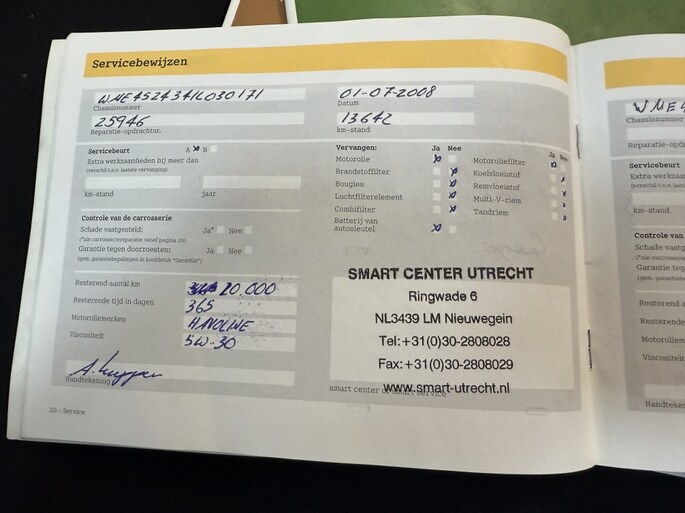 Servicebewijzen
WME4524341L030171
Chassisnummer
01-07-2008
Datum
25946
Reparatie-opdrachtnr.
13642
km-stand
Servicebeurt A x B
Extra werkzaamheden bij meer dan
(verschil t.o.v. laatste vervanging)
km-stand jaar
Controle van de carrosserie
Schade vastgesteld: Ja* Nee
(*zie carrosseriereparatie vanaf pagina 29)
Garantie tegen doorroesten: Ja Nee
(gem. garantiebepalingen in hoofdstuk "Garantie")
Vervangen: Ja Nee
Motorolie x
Brandstoffilter x
Bougies x
Luchtfilterelement x
Combifilter x
Batterij van
autosleutel x
Ja Nee
Motoroliefilter x
Koelvloeistof x
Remvloeistof x
Multi-V-riem x
Tandriem x
Resterend aantal km 20.000
Resterende tijd in dagen 365
Motoroliemerken HAVOLINE
Viscositeit 5W-30
Handtekening
SMART CENTER UTRECHT
Ringwade 6
NL3439 LM Nieuwegein
Tel:+31(0)30-2808028
Fax:+31(0)30-2808029
www.smart-utrecht.nl
smart center of smart service
20 - Service
WME4
Chassisnummer
Reparatie-opd
Servicebeurt
Extra werkza
(verschil t.o.v. la
km-stand
Controle van
Schade vastg
(*zie carrosserie
Garantie teg
(gem. garantiebe
Resterend a
Resterende
Motoroliem
Viscositeit
Handteker